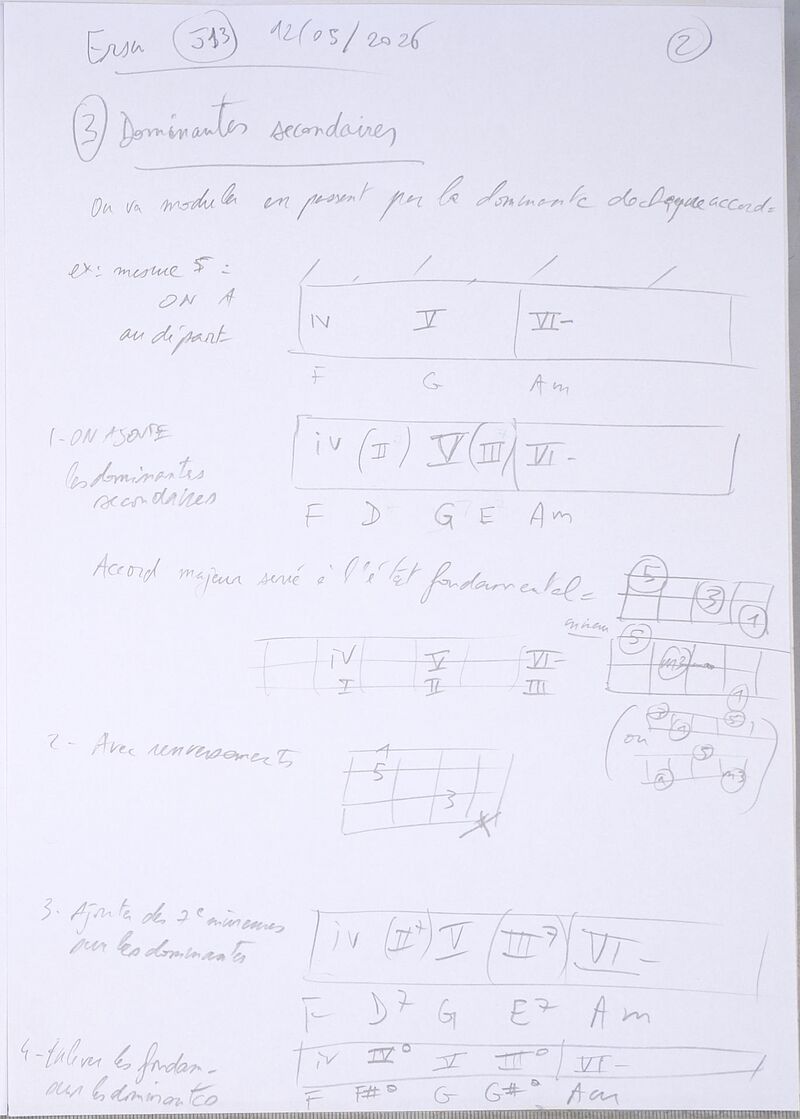 J13 12/05/2026 2
3 Dominantes secondaires
On va moduler en passant par la dominante de chaque accord =
ex: mesure 5 =
ON A
au départ
iv V VI-
F G Am
1- ON AJOUTE
les dominantes
secondaires
iv (II) V (III) VI-
F D G E Am
Accord majeur serré à l'état fondamental =
5 3 1
mineur
5 m3 1
iv V VI-
I II III
2- Avec renversements
1
5
3
ou
1 5
5
m3
3- Ajouter des 7e mineures
sur les dominantes
iv (II7) V (III7) VI-
F D7 G E7 Am
4- enlever les fondam-
sur les dominantes
iv IV° V III° VI-
F F#° G G#° Am